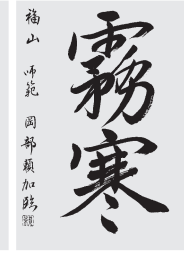 霧寒
福山 師範 岡部頼加臨